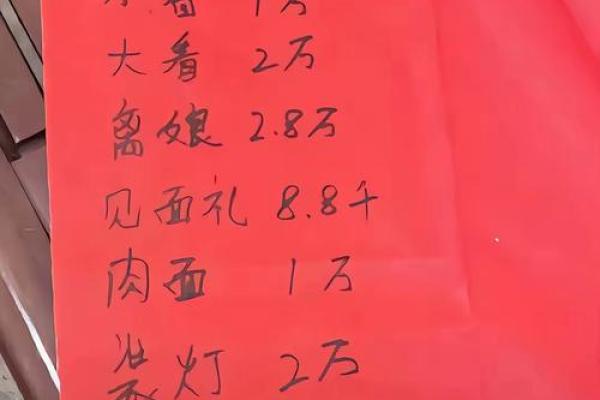 看 1万
大看 2万
离娘 2.8万
见面礼 8.8千
肉面 1万
灯 2万